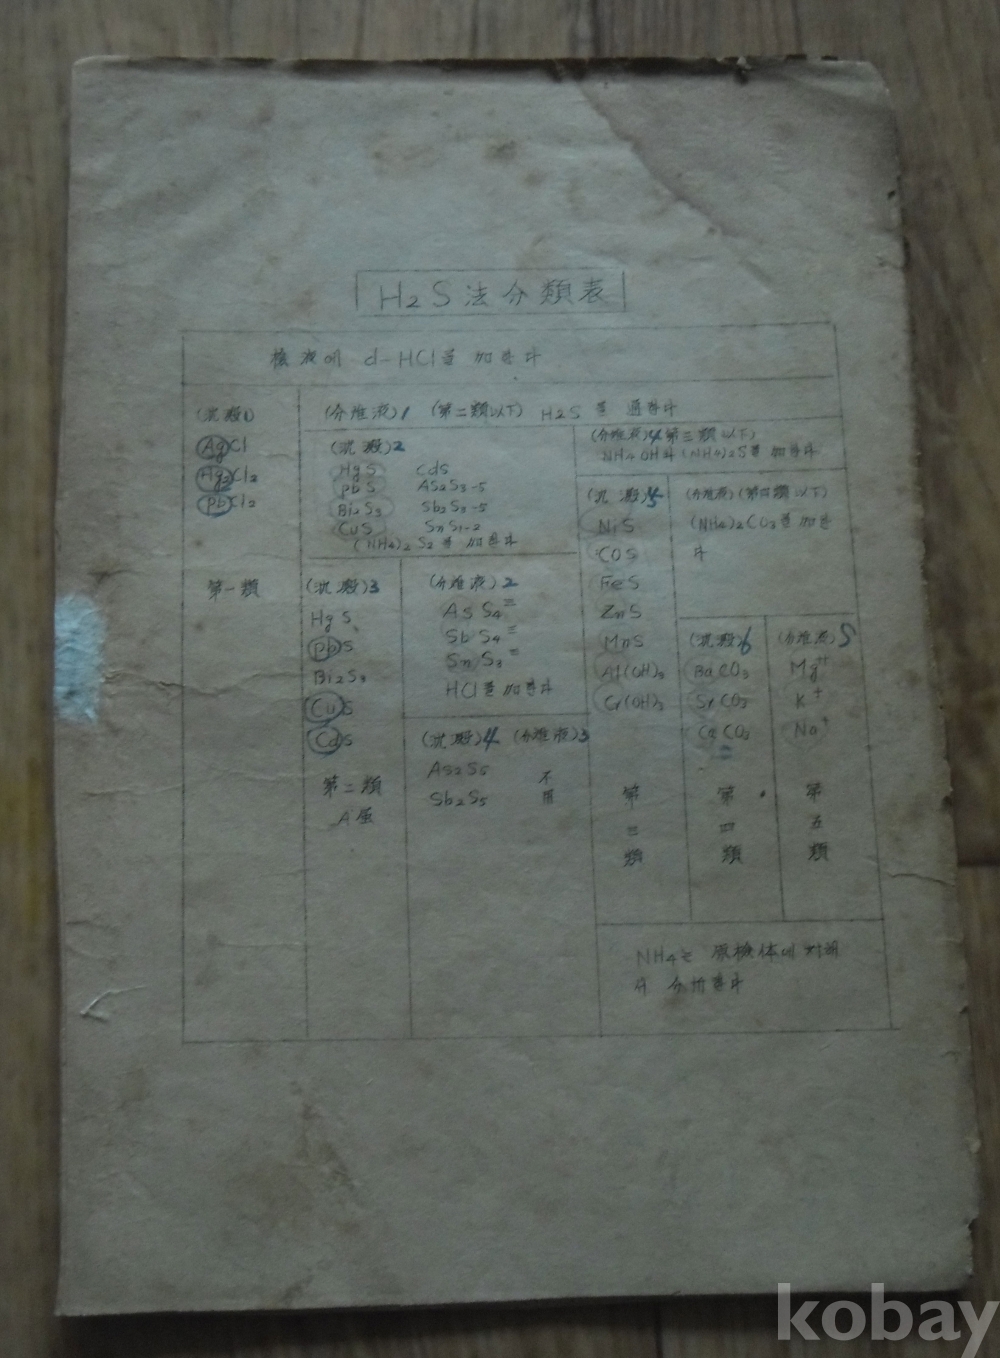 H2S法分類表
檢液에 d-HCl를 加한다
(沈澱)1
AgCl
Hg2Cl2
PbCl2
第一類
(分離液)1 (第二類以下) H2S를 通한다
(沈澱)2
HgS CdS
PbS As2S3-5
Bi2S3 Sb2S3-5
CuS SnS1-2
(NH4)2S2를 加한다
(沈澱)3
HgS
PbS
Bi2S3
CuS
CdS
第二類
A屬
(分離液)2
AsS4≡
SbS4≡
SnS3=
HCl를 加한다
(沈澱)4 (分離液)3
As2S5 不
Sb2S5 用
(分離液)4 第三類以下)
NH4OH와 (NH4)2S를 加한다
(沈澱)5
NiS
COS
FeS
ZnS
MnS
Al(OH)3
Cr(OH)3
第
三
類
(分離液)(第四類以下)
(NH4)2CO3를 加한
다
(沈澱)6
BaCO3
SrCO3
CaCO3
第
四
類
(分離液)5
Mg++
K+
Na+
第
五
類
NH4는 原檢体에 対해
서 分析한다
kobay